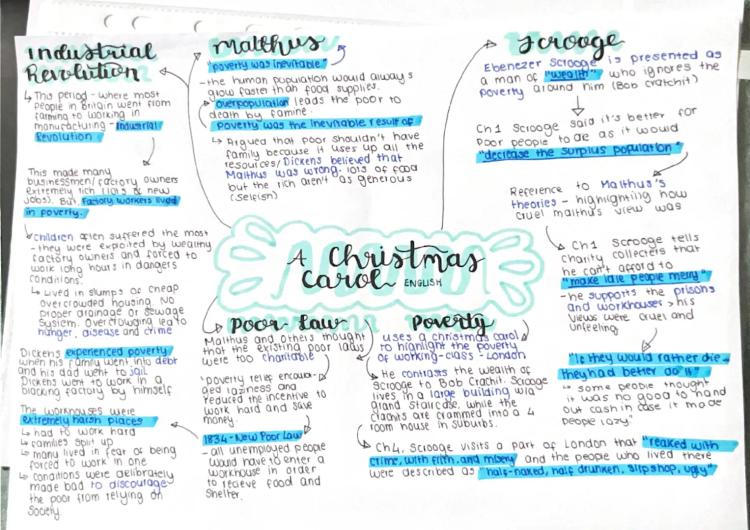 Industrial
Revolution
↳ This period - where most
people in Britain went from
farming to working in
manufacturing - Industrial
Revolution
This made many
businessmen/factory owners
extremely rich (lots of new
jobs). But factory workers lived
in poverty.
↳ Children often suffered the most
- they were exploited by wealthy
factory owners and forced to
work long hours in dangers
conditions.
↳ Lived in slumps of cheap
overcrowded housing. No
proper drainage or sewage
system. Overcrowding led to
hunger, disease and crime
Dickens experienced poverty
when his family went into debt
and his dad went to jail.
Dickens went to work in a
blacking factory by himself
The workhouses were
extremely harsh places
↳ had to work hard
↳ families split up
↳ many lived in fear of being
forced to work in one
↳ conditions were deliberately
made bad to discourage
the poor from relying on
society.
Malthus
"poverty was inevitable"
- the human population would always
grow faster than food supplies.
↳ overpopulation leads the poor to
death by famine.
poverty was the inevitable result of
↳ Argued that poor shouldn't have
family because it uses up all the
resources/Dickens believed that
Malthus was wrong. lots of food
but the rich aren't as generous
(selfish)
Scrooge
Ebenezer Scrooge is presented as
a man of "wealth" who ignores the
poverty around him (Bob Cratchit)
Ch1 Scrooge said it's better for
poor people to die as it would
"decrease the surplus population"
Reference to Malthus's
theories - highlighting how
cruel malthus view was
Ch1 Scrooge tells
charity collecters that
he can't afford to
"make idle people merry"
- he supports the prisons
and workhouses → his
views were cruel and
unfeeling
"If they would rather die -
they had better do it"
↳ some people thought
it was no good to hand
out cash in case it made
people lazy"
A Christmas
Carol ENGLISH
Poor Law
Malthus and others thought
that the existing poor laws
were too charitable
"poverty relief encoura-
ged laziness and
reduced the incentive to
work hard and save
money
1834 - New Poor Law
- all unemployed people
would have to enter a
workhouse in order
to recieve food and
shelter.
Poverty
uses a christmas carol
to highlight the poverty
of working-class - London
↳ He contrasts the wealth of
Scrooge to Bob Crachit. Scrooge
lives in a large building with
grand staircase, while the
crachits are crammed into a 4
room house in suburbs.
↳ Ch4, Scrooge visits a part of London that "reaked with
crime, with filth, and misery" and the people who lived there
were described as "half-naked, half drunken, slipshop, ugly"